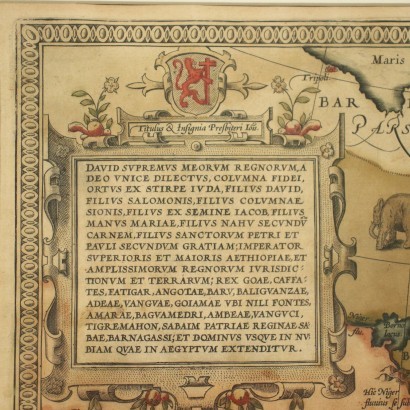 Maris
Tripoli
BAR
PARS
Titulus & Insignia Presbiteri Iou.
DAVID SVPREMVS MEORVM REGNORVM, A
DEO VNICE DILECTVS, COLVMNA FIDEI,
ORTVS EX STIRPE IVDA, FILIVS DAVID,
FILIVS SALOMONIS, FILIVS COLVMNAE
SIONIS, FILIVS EX SEMINE IACOB, FILIVS
MANVS MARIAE, FILIVS NAHV SECVNDV̄
CARNEM, FILIVS SANCTORVM PETRI ET
PAVLI SECVNDVM GRATIAM; IMPERATOR
SVPERIORIS ET MAIORIS AETHIOPIAE, ET
AMPLISSIMORVM REGNORVM IVRISDIC-
TIONVM ET TERRARVM; REX GOAE, CAFFA-
TES, FATIGAR, ANGOTAE, BARV, BALIGVANZAE,
ADEAE, VANGVAE, GOIAMAE VBI NILI FONTES,
AMARAE, BAGVAMEDRI, AMBEAE, VANGVCI,
TIGREMAHON, SABAIM PATRIAE REGINAE SA-
BAE, BARNAGASSI; ET DOMINVS VSQVE IN NV-
BIAM QVAE IN AEGYPTVM EXTENDITVR.
Borno
lacus
Hic Niger
fluvius